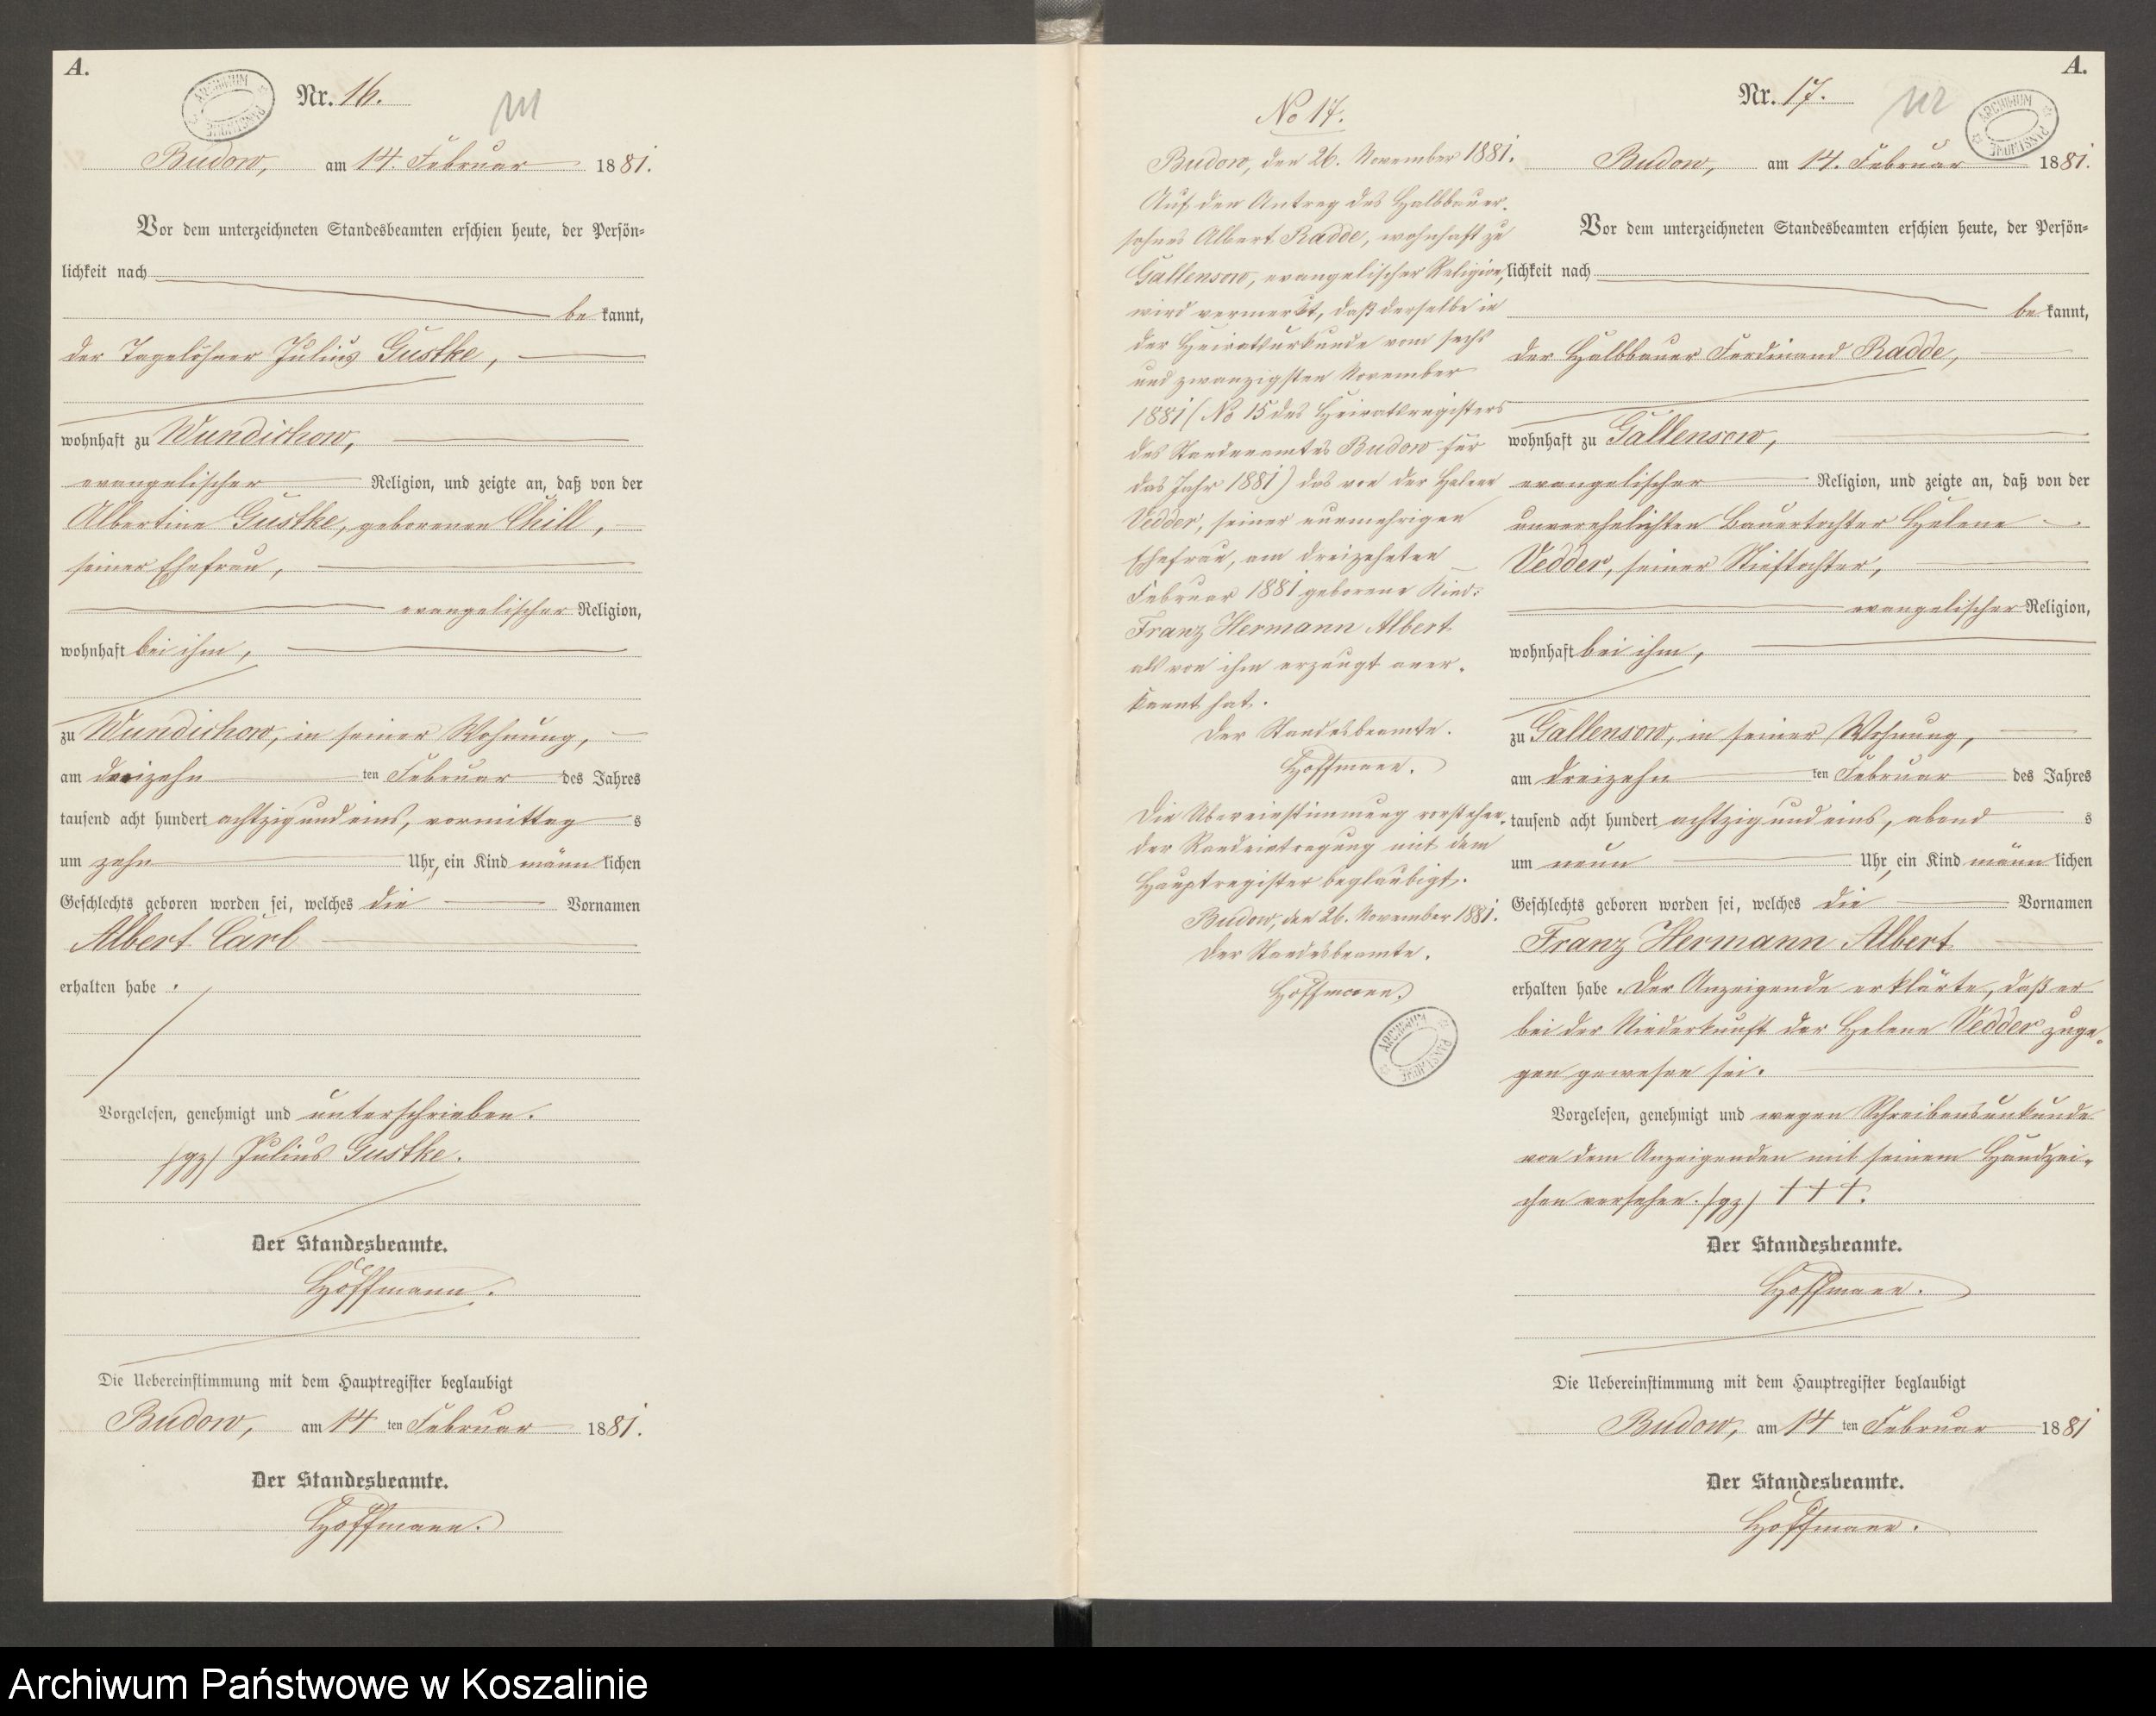 A.
ARCHIWUM PAŃSTWOWE
Nr. 16.
Budow, am 14. Februar 1881.
Vor dem unterzeichneten Standesbeamten erschien heute, der Persön=
lichkeit nach
be kannt,
der Tagelöhner Julius Gustke,
wohnhaft zu Wundichow,
evangelischer Religion, und zeigte an, daß von der
Albertine Gustke, geborenen Chill,
seiner Ehefrau,
evangelischer Religion,
wohnhaft bei ihm,
zu Wundichow, in seiner Wohnung,
am dreizehn ten Februar des Jahres
tausend acht hundert achtzig und eins, vormittag s
um zehn Uhr, ein Kind männ lichen
Geschlechts geboren worden sei, welches die Vornamen
Albert Carl
erhalten habe.
Vorgelesen, genehmigt und unterschrieben.
(gz) Julius Gustke.
Der Standesbeamte.
Hoffmann.
Die Uebereinstimmung mit dem Hauptregister beglaubigt
Budow, am 14 ten Februar 1881.
Der Standesbeamte.
Hoffmann.
No 17.
Budow, den 26. November 1881.
Auf den Antrag des Halbbauer-
sohnes Albert Radde, wohnhaft zu
Gallensow, evangelischer Religion,
wird vermerkt, daß derselbe in
der Heiratsurkunde vom sechs
und zwanzigsten November
1881 (No 15 des Heiratsregisters
des Standesamtes Budow für
das Jahr 1881) das von der Helene
Vedder, seiner nunmehrigen
Ehefrau, am dreizehnten
Februar 1881 geborene Kind:
Franz Hermann Albert
als von ihm erzeugt aner-
kannt hat.
Der Standesbeamte.
Hoffmann.
Die Übereinstimmung vorstehen-
der Randeintragung mit dem
Hauptregister beglaubigt.
Budow, den 26. November 1881.
Der Standesbeamte.
Hoffmann.
ARCHIWUM PAŃSTWOWE
A.
ARCHIWUM PAŃSTWOWE
Nr. 17.
Budow, am 14. Februar 1881.
Vor dem unterzeichneten Standesbeamten erschien heute, der Persön=
lichkeit nach
be kannt,
der Halbbauer Ferdinand Radde,
wohnhaft zu Gallensow,
evangelischer Religion, und zeigte an, daß von der
unverehelichten Bauertochter Helene
Vedder, seiner Stieftochter,
evangelischer Religion,
wohnhaft bei ihm,
zu Gallensow, in seiner Wohnung,
am dreizehn ten Februar des Jahres
tausend acht hundert achtzig und eins, abend s
um neun Uhr, ein Kind männ lichen
Geschlechts geboren worden sei, welches die Vornamen
Franz Hermann Albert
erhalten habe. Der Anzeigende erklärte, daß er
bei der Niederkunft der Helene Vedder zuge-
gen gewesen sei.
Vorgelesen, genehmigt und wegen Schreibensunkunde
von dem Anzeigenden mit seinem Handzei-
chen versehen. (gz) +++.
Der Standesbeamte.
Hoffmann.
Die Uebereinstimmung mit dem Hauptregister beglaubigt
Budow, am 14 ten Februar 1881
Der Standesbeamte.
Hoffmann.
Archiwum Państwowe w Koszalinie